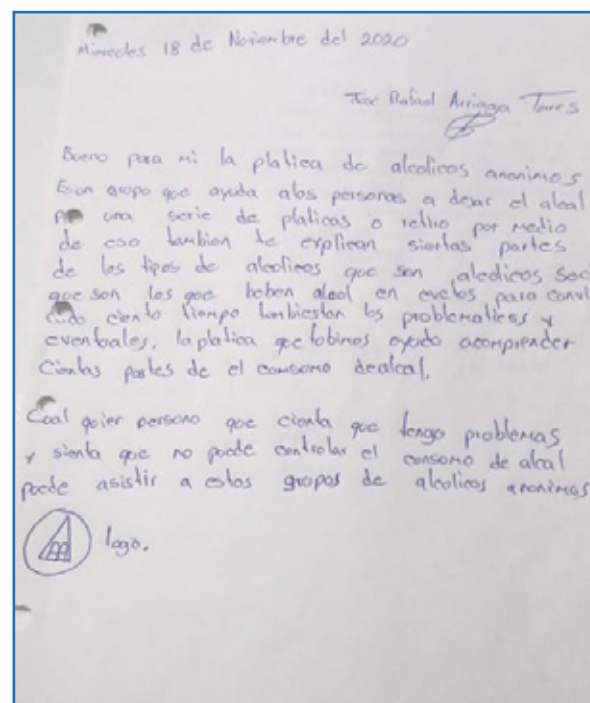 Miercoles 18 de Noviembre del 2020
Jose Rafael Arriaga Torres
Bueno para mi la platica de alcolicos anonimos
Es un grupo que ayuda alos personas a dejar el alcal
por una serie de platicas o retiro por medio
de eso tambien te explican siertas partes
de los tipos de alcolicos que son alcolicos soc
que son los que beben alcol en evetos para convi
cada ciento tiempo tambiestan los problematicos y
eventuales, la platica que tobimos ayudo acomprender
Ciertas partes de el consumo dealcal.
Cual quier persona que cienta que tengo problemas
y sienta que no puede controlar el consumo de alcal
puede asistir a estos grupos de alcolicos anonimos
logo.